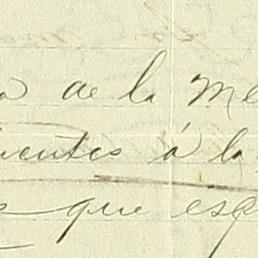 de la Me
uentes á la
que esq